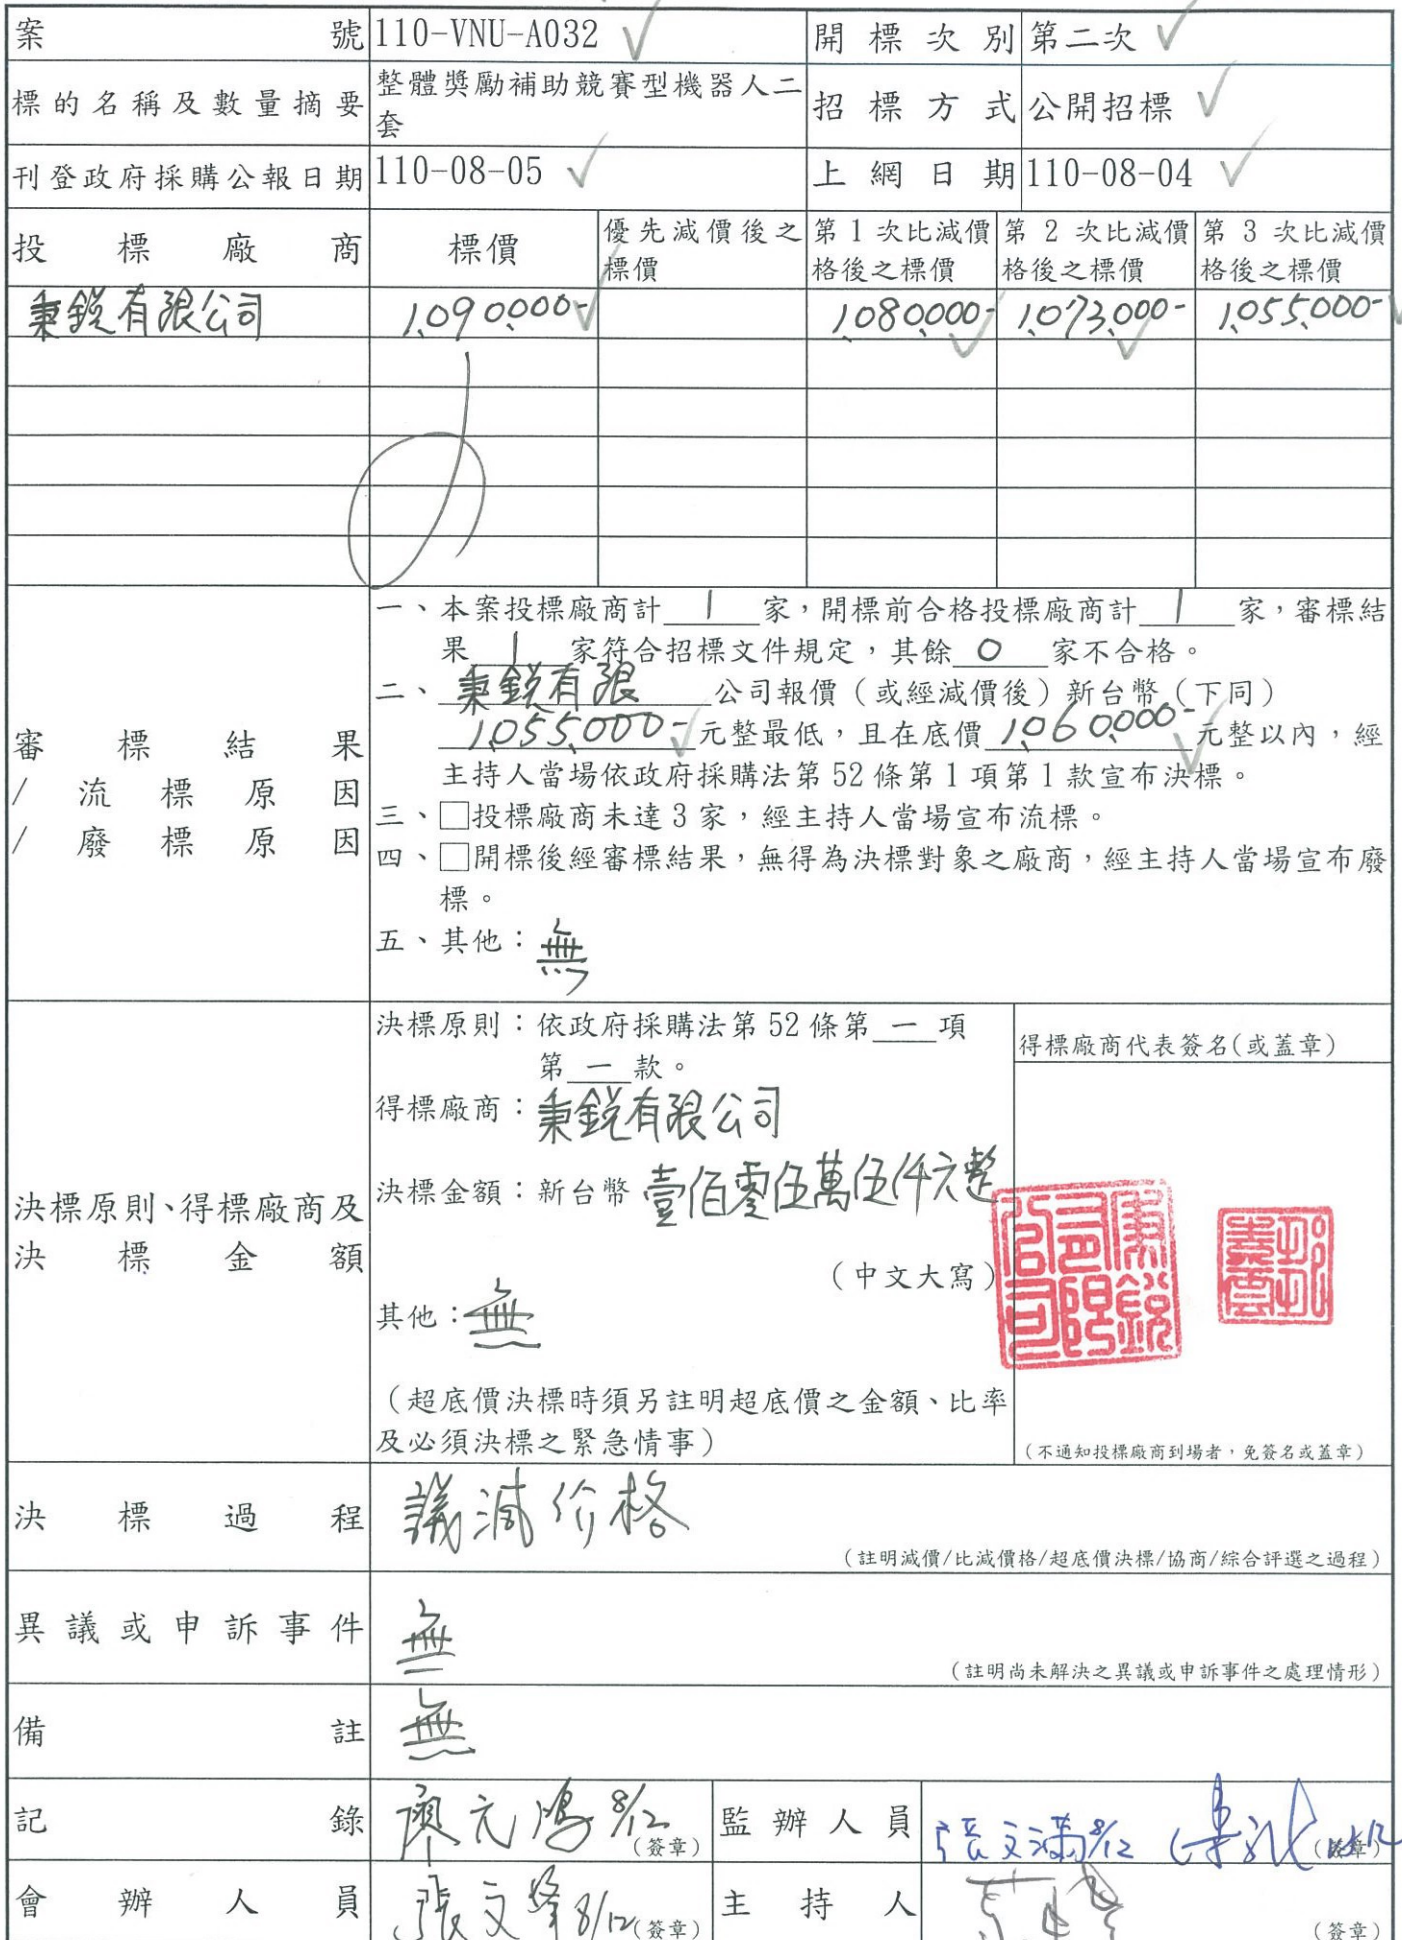 案號 110-VNU-A032 開標次別 第二次
標的名稱及數量摘要 整體獎勵補助競賽型機器人二套 招標方式 公開招標
刊登政府採購公報日期 110-08-05 上網日期 110-08-04
投標廠商 標價 優先減價後之標價 第1次比減價格後之標價 第2次比減價格後之標價 第3次比減價格後之標價
秉銳有限公司 1,090,000- 1,080,000- 1,073,000- 1,055,000-
審標結果
/流標原因
/廢標原因
一、本案投標廠商計 1 家,開標前合格投標廠商計 1 家,審標結
果 1 家符合招標文件規定,其餘 0 家不合格。
二、秉銳有限 公司報價(或經減價後)新台幣(下同)
1,055,000- 元整最低,且在底價 1,060,000- 元整以內,經
主持人當場依政府採購法第52條第1項第1款宣布決標。
三、□投標廠商未達3家,經主持人當場宣布流標。
四、□開標後經審標結果,無得為決標對象之廠商,經主持人當場宣布廢
標。
五、其他:無
決標原則、得標廠商及
決標金額
決標原則:依政府採購法第52條第一項
第一款。
得標廠商:秉銳有限公司
決標金額:新台幣 壹佰零伍萬伍仟元整
(中文大寫)
其他:無
(超底價決標時須另註明超底價之金額、比率
及必須決標之緊急情事)
得標廠商代表簽名(或蓋章)
秉銳有限公司
(不通知投標廠商到場者,免簽名或蓋章)
決標過程 議減价格
(註明減價/比減價格/超底價決標/協商/綜合評選之過程)
異議或申訴事件 無
(註明尚未解決之異議或申訴事件之處理情形)
備註 無
記錄 廖元鴻 8/12 (簽章) 監辦人員 張文滿 8/12 (簽章)
會辦人員 張文鋒 8/12 (簽章) 主持人 (簽章)